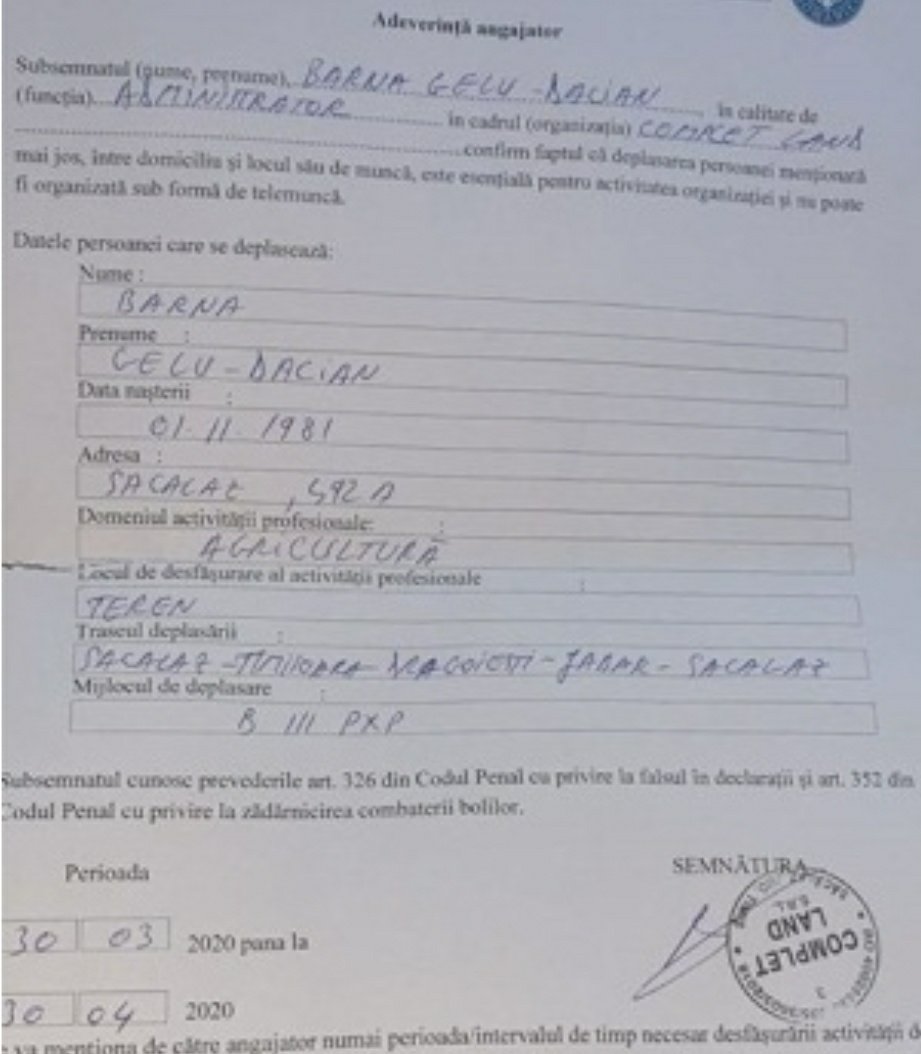 Adeverință angajator
Subsemnatul (nume, prenume), BARNA GELU-DACIAN, în calitate de
(funcția) ADMINISTRATOR în cadrul (organizația) COMPLET LAND
confirm faptul că deplasarea persoanei menționată
mai jos, între domiciliu și locul său de muncă, este esențială pentru activitatea organizației și nu poate
fi organizată sub formă de telemuncă.
Datele persoanei care se deplasează:
Nume :
BARNA
Prenume :
GELU-DACIAN
Data nașterii :
01.11.1981
Adresa :
SACALAZ, 592 A
Domeniul activității profesionale: :
AGRICULTURĂ
Locul de desfășurare al activității profesionale :
TEREN
Traseul deplasării :
SACALAZ-TIMIȘOARA-DRAGOIESTI-JABAR-SACALAZ
Mijlocul de deplasare :
B 111 PXP
Subsemnatul cunosc prevederile art. 326 din Codul Penal cu privire la falsul în declarații și art. 352 din
Codul Penal cu privire la zădărnicirea combaterii bolilor.
Perioada
SEMNĂTURA
COMPLET
LAND
S.R.L.
30 03 2020 pana la
30 04 2020
va menționa de către angajator numai perioada/intervalul de timp necesar desfășurării activității